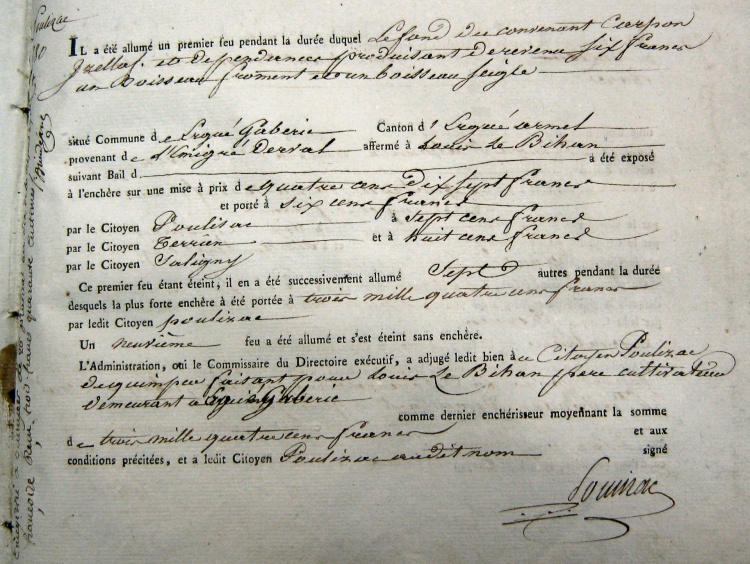 IL a été allumé un premier feu pendant la durée duquel Le fond du convenant Carpon
Izellaf et dependances produisant de revenu six francs
un Boisseau froment et un boisseau seigle
situé Commune de Ergué Gaberic Canton d' Ergué armel
provenant de l'Emigré Derval affermé à Louis Le Bihan
suivant Bail d a été exposé
à l'enchère sur une mise à prix de quatre cens dix sept francs
et porté à six cens francs
par le Citoyen Poulizac à sept cens francs
par le Citoyen Terrien et à huit cens francs
par le Citoyen Saligny
Ce premier feu étant éteint, il en a été successivement allumé Sept autres pendant la durée
desquels la plus forte enchère a été portée à trois mille quatre cens francs
par ledit Citoyen poulizac
Un neuvième feu a été allumé et s'est éteint sans enchère.
L'Administration, oui le Commissaire du Directoire exécutif, a adjugé ledit bien au Citoyen Poulizac
de quimper faisant pour Louis Le Bihan pere cultivateur
demeurant a Ergué Gaberic
comme dernier enchérisseur moyennant la somme
de trois mille quatre cens francs et aux
conditions précitées, et a ledit Citoyen Poulizac audit nom signé
Poulizac